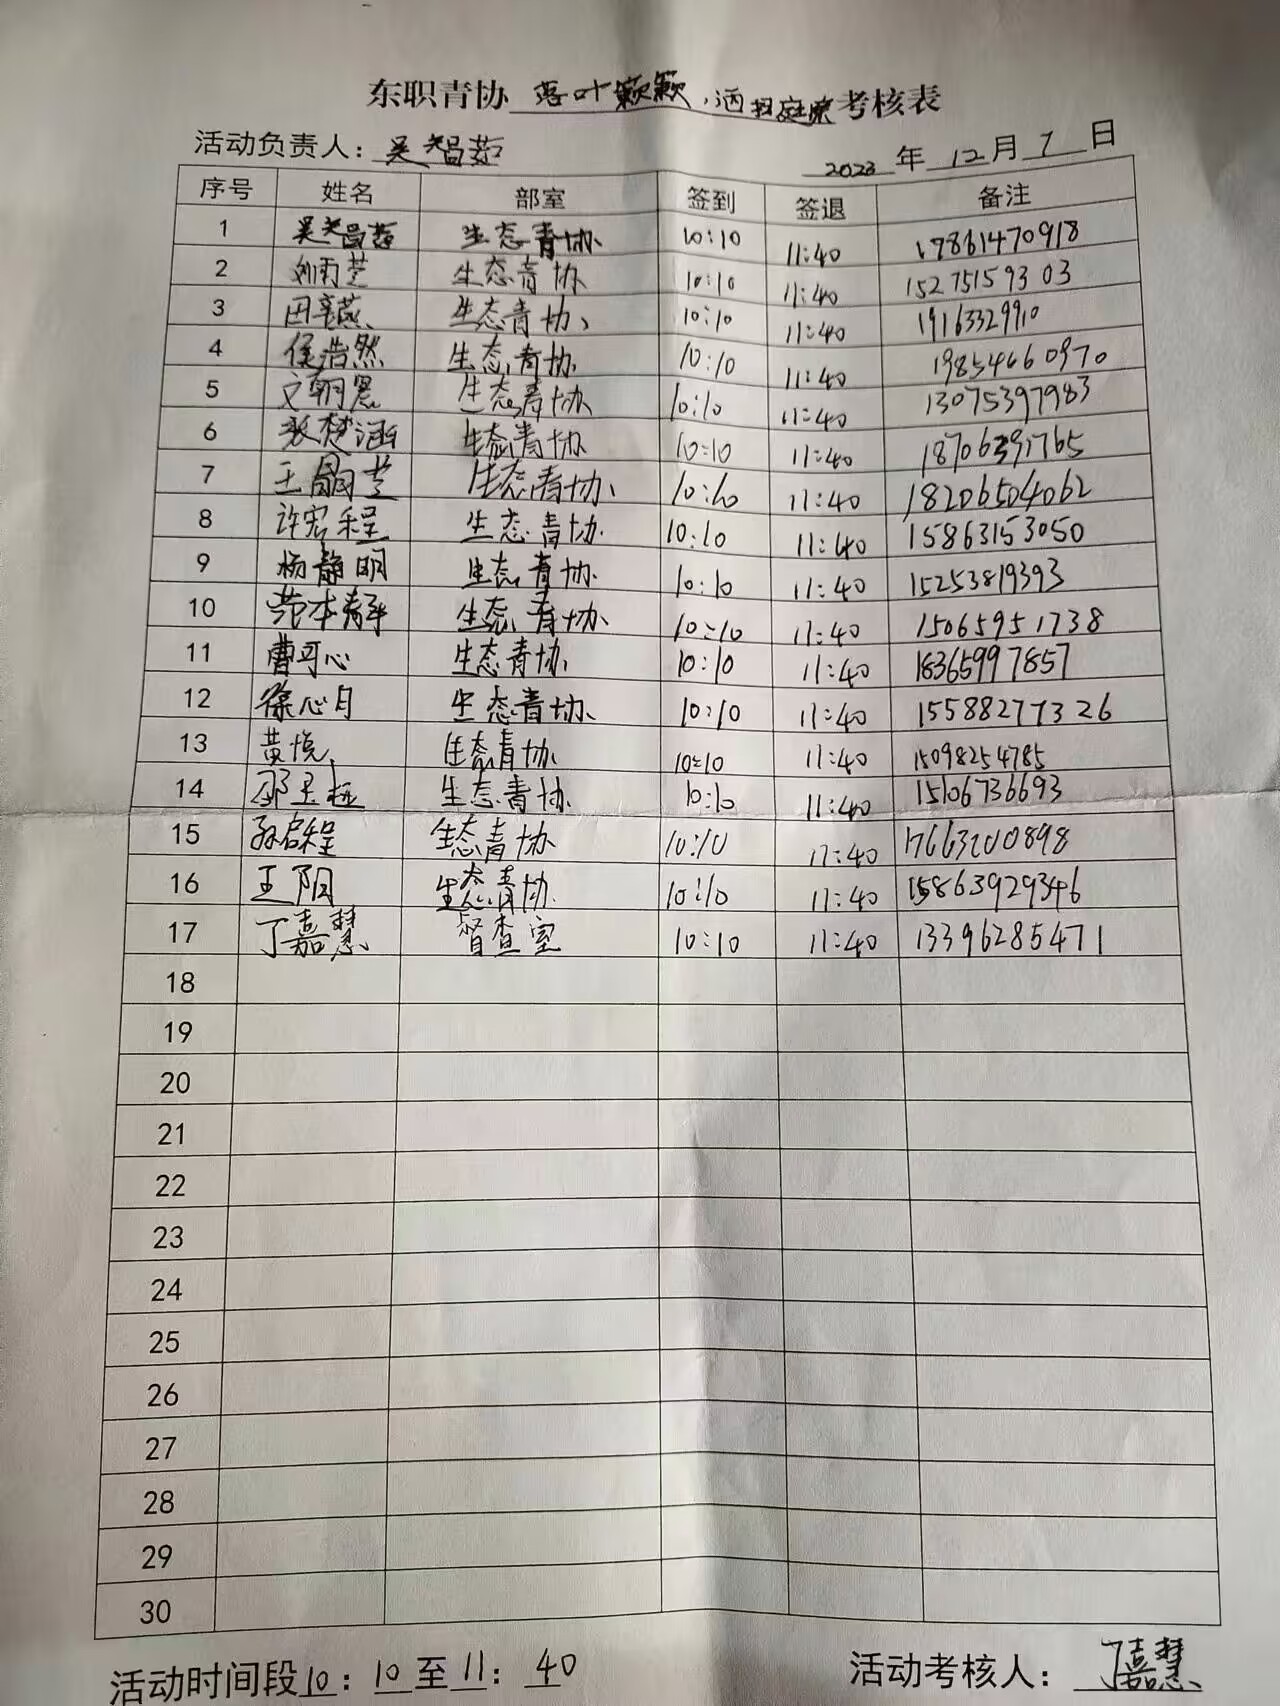 东职青协 落叶簌簌,洒扫庭院 考核表
活动负责人: 吴智茹 2023 年 12 月 7 日
序号 姓名 部室 签到 签退 备注
1 吴智茹 生态青协 10:10 11:40 17861470918
2 刘雨芝 生态青协 10:10 11:40 15275159303
3 田彦燕 生态青协 10:10 11:40 19163329910
4 侯浩然 生态青协 10:10 11:40 19854660970
5 文朝恩 生态青协 10:10 11:40 13075397983
6 张楚涵 生态青协 10:10 11:40 18706391765
7 王 生态青协 10:10 11:40 18206504062
8 许宏程 生态青协 10:10 11:40 15863153050
9 杨静明 生态青协 10:10 11:40 15253819393
10 范本静 生态青协 10:10 11:40 15065951738
11 曹可心 生态青协 10:10 11:40 18365997857
12 徐心月 生态青协 10:10 11:40 15588277326
13 黄悦 生态青协 10:10 11:40 15098254785
14 邵玉桠 生态青协 10:10 11:40 15106736693
15 孙启程 生态青协 10:10 11:40 17663200898
16 王阳 生态青协 10:10 11:40 15863929346
17 丁嘉慧 督查室 10:10 11:40 13396285471
18
19
20
21
22
23
24
25
26
27
28
29
30
活动时间段 10:10 至 11:40 活动考核人: 丁嘉慧